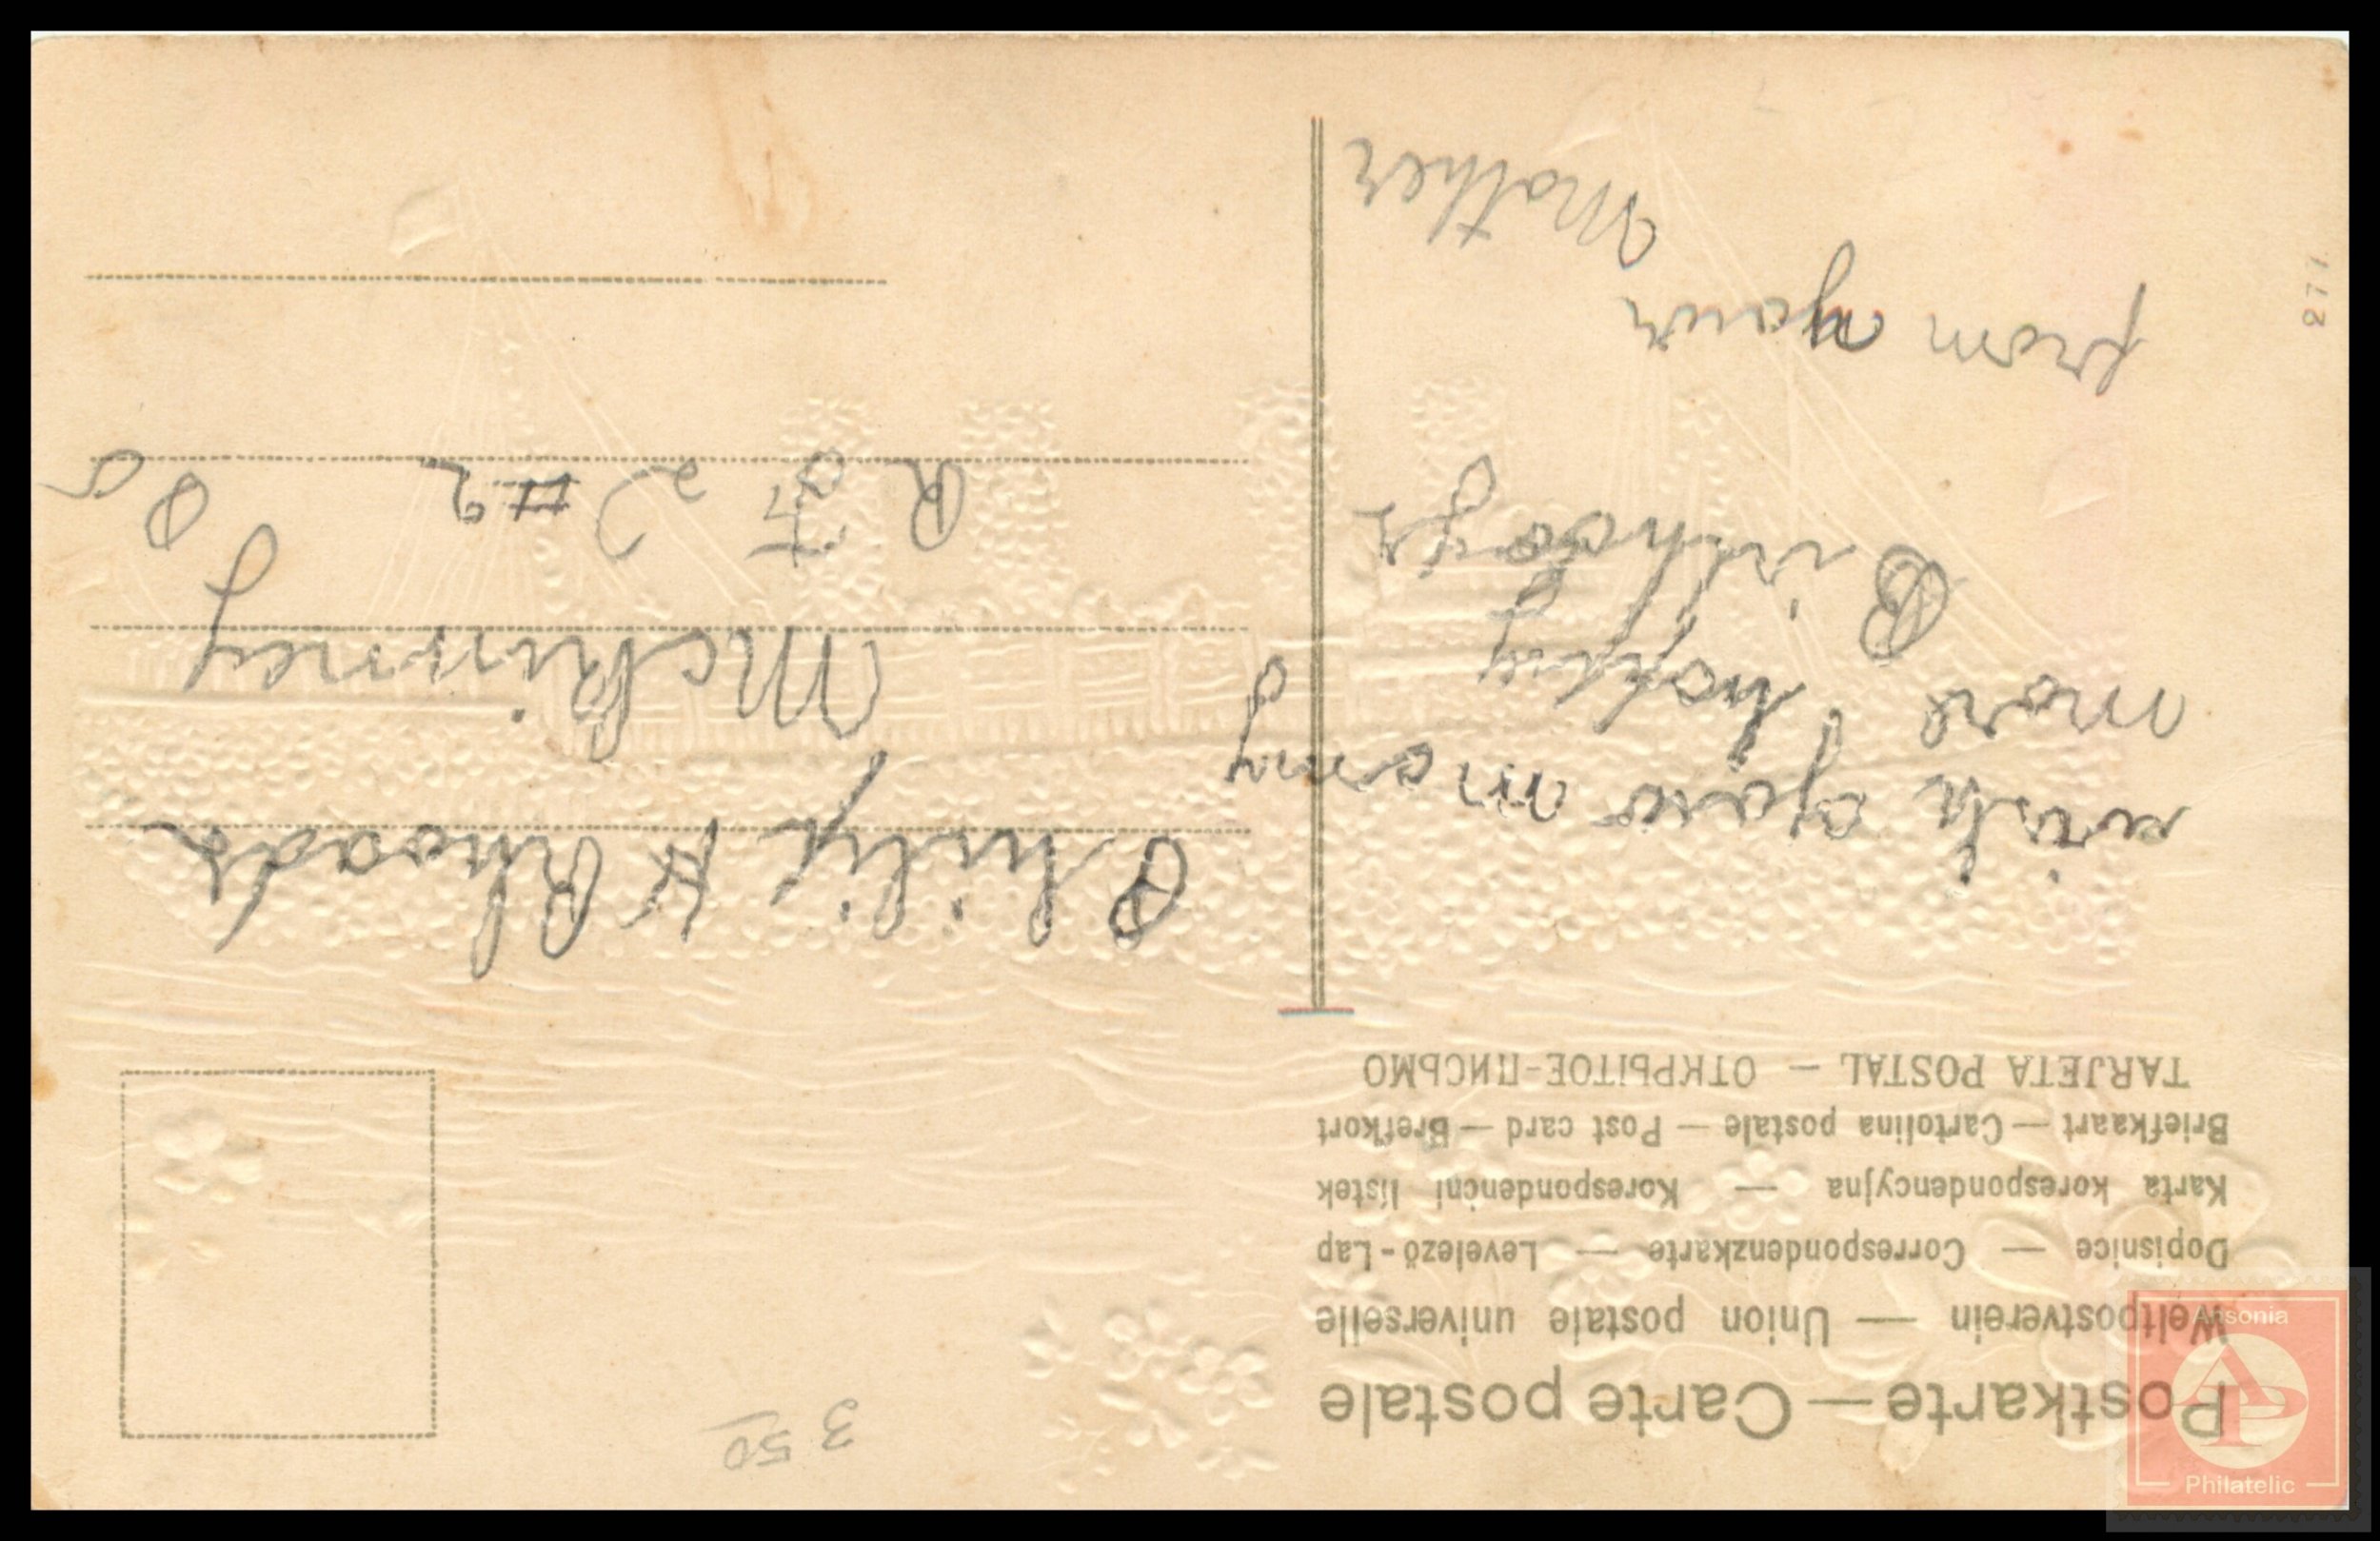 Postkarte — Carte postale
Weltpostverein — Union postale universelle
Dopisnice — Correspondenzkarte — Levelező-Lap
Karta korespondencyjna — Korespondenční lístek
Briefkaart — Cartolina postale — Post card — Brefkort
TARJETA POSTAL — ОТКРЫТОЕ-ПИСЬМО
wish you many
more happy
Birthdays
from your
Mother
3 50
Philip H Rhoads
McKinney
R F D #2
Pa
277
Ansonia
AP
Philatelic